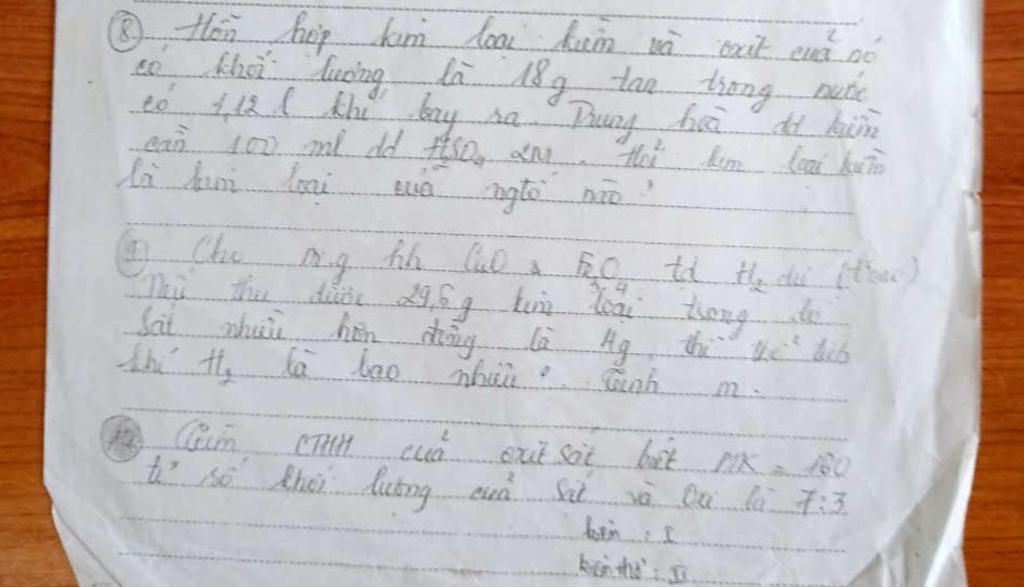 8. Hỗn hợp kim loại kiềm và oxit của nó
có khối lượng là 18g tan trong nước
có 1,12 l khí bay ra. Trung hoà dd kiềm
cần 100 ml dd H2SO4 2M. Hỏi kim loại kiềm
là kim loại của ngtố nào?
9. Cho m g hh CuO & Fe3O4 td H2 dư (tocao)
Nếu thu được 29,6g kim loại trong đó
sắt nhiều hơn đồng là 4g thì thể tích
khí H2 là bao nhiêu. Tính m.
Tìm CTHH của oxit sắt, biết PTK = 160
tỉ số khối lượng của sắt và Oxi là 7:3
kiềm : I
kiềm thổ : II